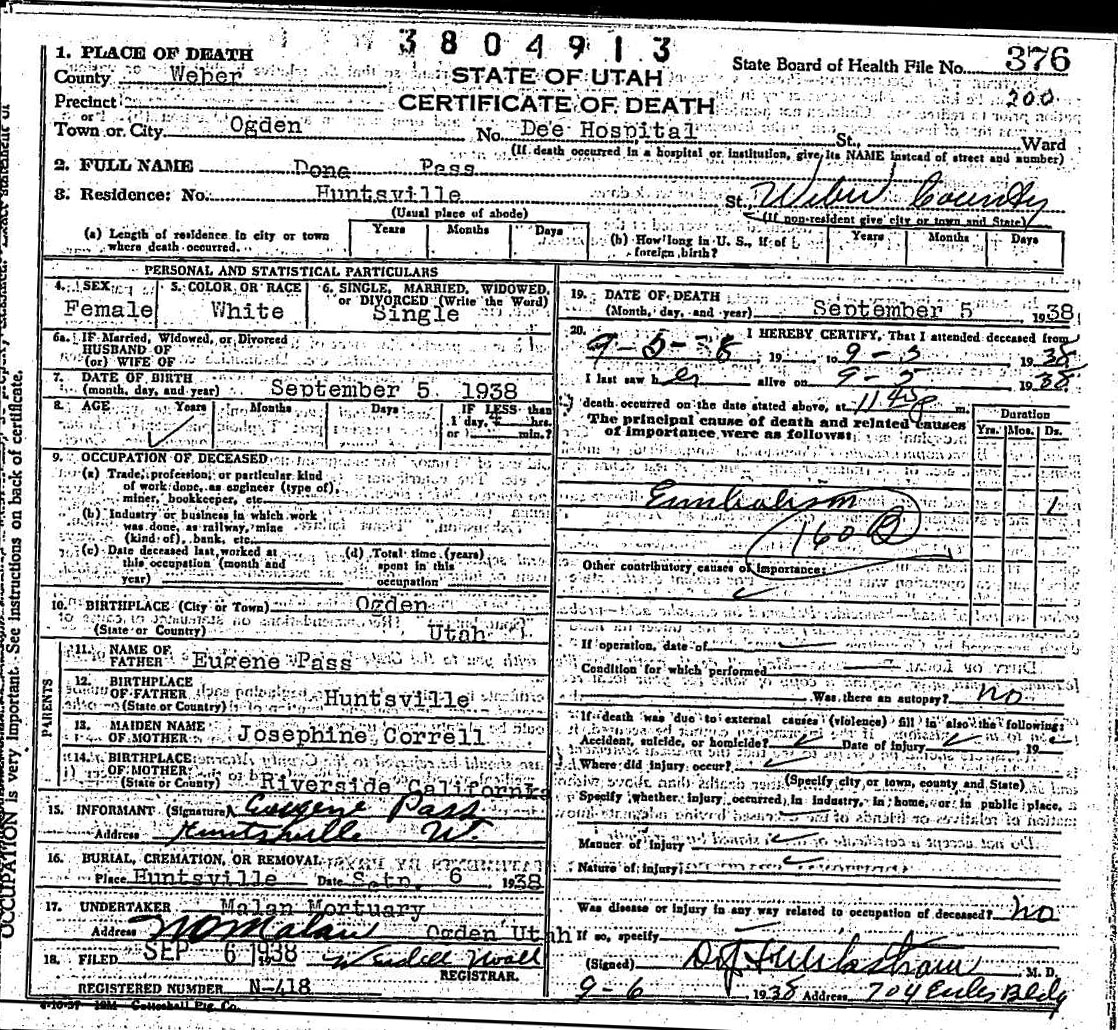 3804913
1. PLACE OF DEATH
STATE OF UTAH
State Board of Health File No. 376
County Weber
200
Precinct
CERTIFICATE OF DEATH
or
Town or City Ogden No. Dee Hospital St., Ward
(If death occurred in a hospital or institution, give its NAME instead of street and number)
2. FULL NAME Dona Pass
3. Residence: No. Huntsville St., Weber County
(Usual place of abode) (If non-resident give city or town and State)
(a) Length of residence in city or town where death occurred. Years Months Days
(b) How long in U. S., if of foreign birth? Years Months Days
PERSONAL AND STATISTICAL PARTICULARS
4. SEX Female
5. COLOR OR RACE White
6. SINGLE, MARRIED, WIDOWED, or DIVORCED (Write the Word) Single
6a. If Married, Widowed, or Divorced
HUSBAND OF
(or) WIFE OF
7. DATE OF BIRTH
(month, day, and year) September 5 1938
8. AGE Years Months Days IF LESS than
1 day, 4 hrs.
or min.?
9. OCCUPATION OF DECEASED
(a) Trade, profession, or particular kind
of work done, as engineer (type of),
miner, bookkeeper, etc.
(b) Industry or business in which work
was done, as railway, mine
(kind of), bank, etc.
(c) Date deceased last worked at
this occupation (month and
year)
(d) Total time (years)
spent in this
occupation
10. BIRTHPLACE (City or Town) Ogden
(State or Country) Utah
PARENTS
11. NAME OF
FATHER Eugene Pass
12. BIRTHPLACE
OF FATHER Huntsville
(State or Country)
13. MAIDEN NAME
OF MOTHER Josephine Correll
14. BIRTHPLACE
OF MOTHER
(State or Country) Riverside California
15. INFORMANT (Signature) Eugene Pass
Address Huntsville Ut.
16. BURIAL, CREMATION, OR REMOVAL
Place Huntsville Date Sptp. 6, 1938
17. UNDERTAKER Malan Mortuary
Address Ogden Utah
18. FILED SEP 6 1938 Wendell
REGISTRAR.
REGISTERED NUMBER N-418
19. DATE OF DEATH
(Month, day, and year) September 5 1938
20. I HEREBY CERTIFY, That I attended deceased from
9-5-38, 19 to 9-5 1938
I last saw her alive on 9-5 1938
death occurred on the date stated above, at 11 45 p m.
The principal cause of death and related causes
of importance were as follows:
Duration
Yrs. Mos. Ds.
Embolism 1
160 B
Other contributory causes of importance:
If operation, date of
Condition for which performed
Was there an autopsy? no
If death was due to external causes (violence) fill in also the following:
Accident, suicide, or homicide? Date of injury, 19
Where did injury occur?
(Specify city or town, county and State)
Specify whether injury occurred in industry, in home, or in public place.
Manner of injury
Nature of injury
Was disease or injury in any way related to occupation of deceased? no
If so, specify
(Signed) M. D.
9-6, 1938 Address 704 Eccles Bldg
OCCUPATION is very important. See instructions on back of certificate.